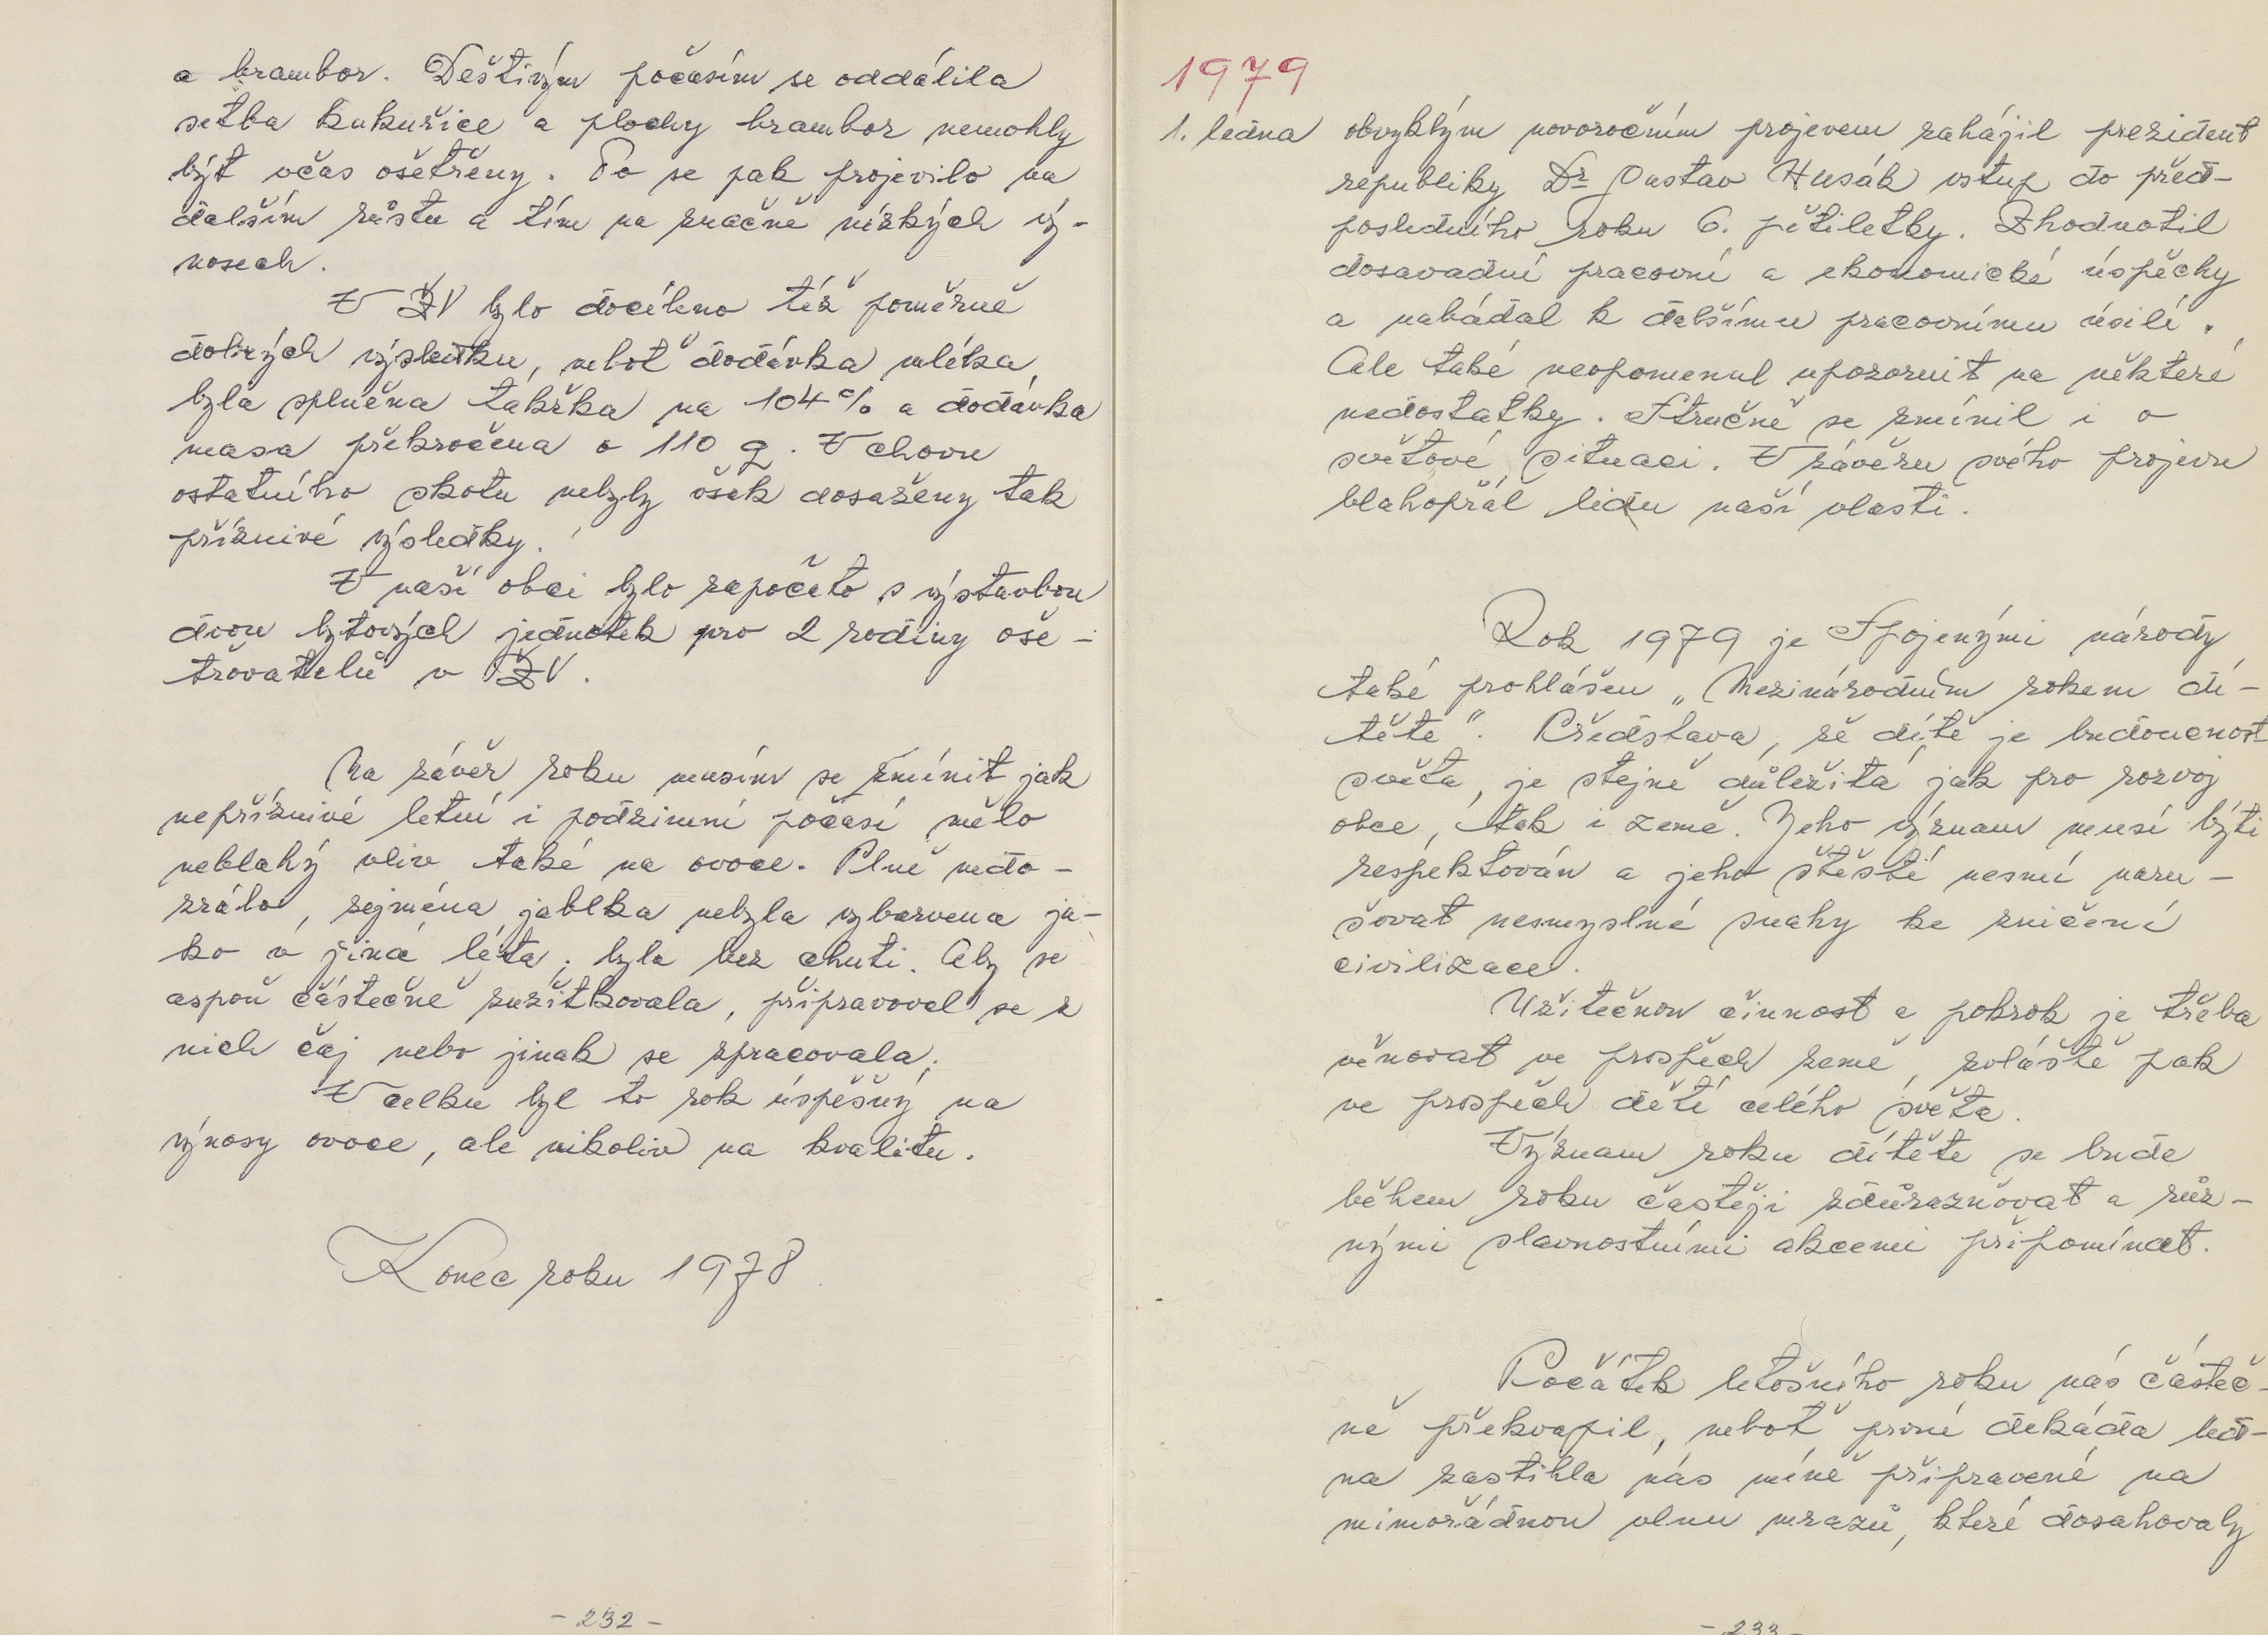 a brambor. Deštivým počasím se oddálila
setba kukuřice a plochy brambor nemohly
být včas ošetřeny. To se pak projevilo na
dalším růstu a tím na značně nízkých vý-
nosech.
V ŽV bylo docíleno též poměrně
dobrých výsledku, neboť dodávka mléka
byla splněna takřka na 104% a dodávka
masa překročena o 110 q. V chovu
ostatního skotu nebyly však dosaženy tak
příznivé výsledky.
V naší obci bylo započato s výstavbou
dvou bytových jednotek pro 2 rodiny oše-
třovatelů v ŽV.
Na závěr roku musím se zmínit jak
nepříznivé letní i podzimní počasí mělo
neblahý vliv také na ovoce. Plně nedo-
zrálo, zejména jablka nebyla vybarvena ja-
ko v jiná léta; byla bez chuti. Aby se
aspoň částečně zužitkovala, připravoval se z
nich čaj nebo jinak se zpracovala.
V celku byl to rok úspěšný na
výnosy ovoce, ale nikoliv na kvalitu.
Konec roku 1978
- 232 -
1979
1. ledna obvyklým novoročním projevem zahájil prezident
republiky Dr Gustav Husák vstup do před-
posledního roku 6. pětiletky. Zhodnotil
dosavadní pracovní a ekonomické úspěchy
a nabádal k dalšímu pracovnímu úsilí.
Ale také neopomenul upozornit na některé
nedostatky. Stručně se zmínil i o
světové situaci. V závěru svého projevu
blahopřál lidu naší vlasti.
Rok 1979 je Spojenými národy
také prohlášen „Mezinárodním rokem dí-
těte“. Představa, že dítě je budoucnost
světa, je stejně důležitá jak pro rozvoj
obce, tak i země. Jeho význam musí býti
respektován a jeho štěstí nesmí naru-
šovat nesmyslné snahy ke zničení
civilizace.
Užitečnou činnost a pokrok je třeba
věnovat ve prospěch země, zvláště pak
ve prospěch dětí celého světa.
Význam roku dítěte se bude
během roku častěji zdůrazňovat a růz-
nými slavnostními akcemi připomínat.
Počátek letošního roku nás částeč-
ně překvapil, neboť první dekáda led-
na zastihla nás míně připravené na
mimořádnou vlnu mrazů, které dosahovaly
- 233 -